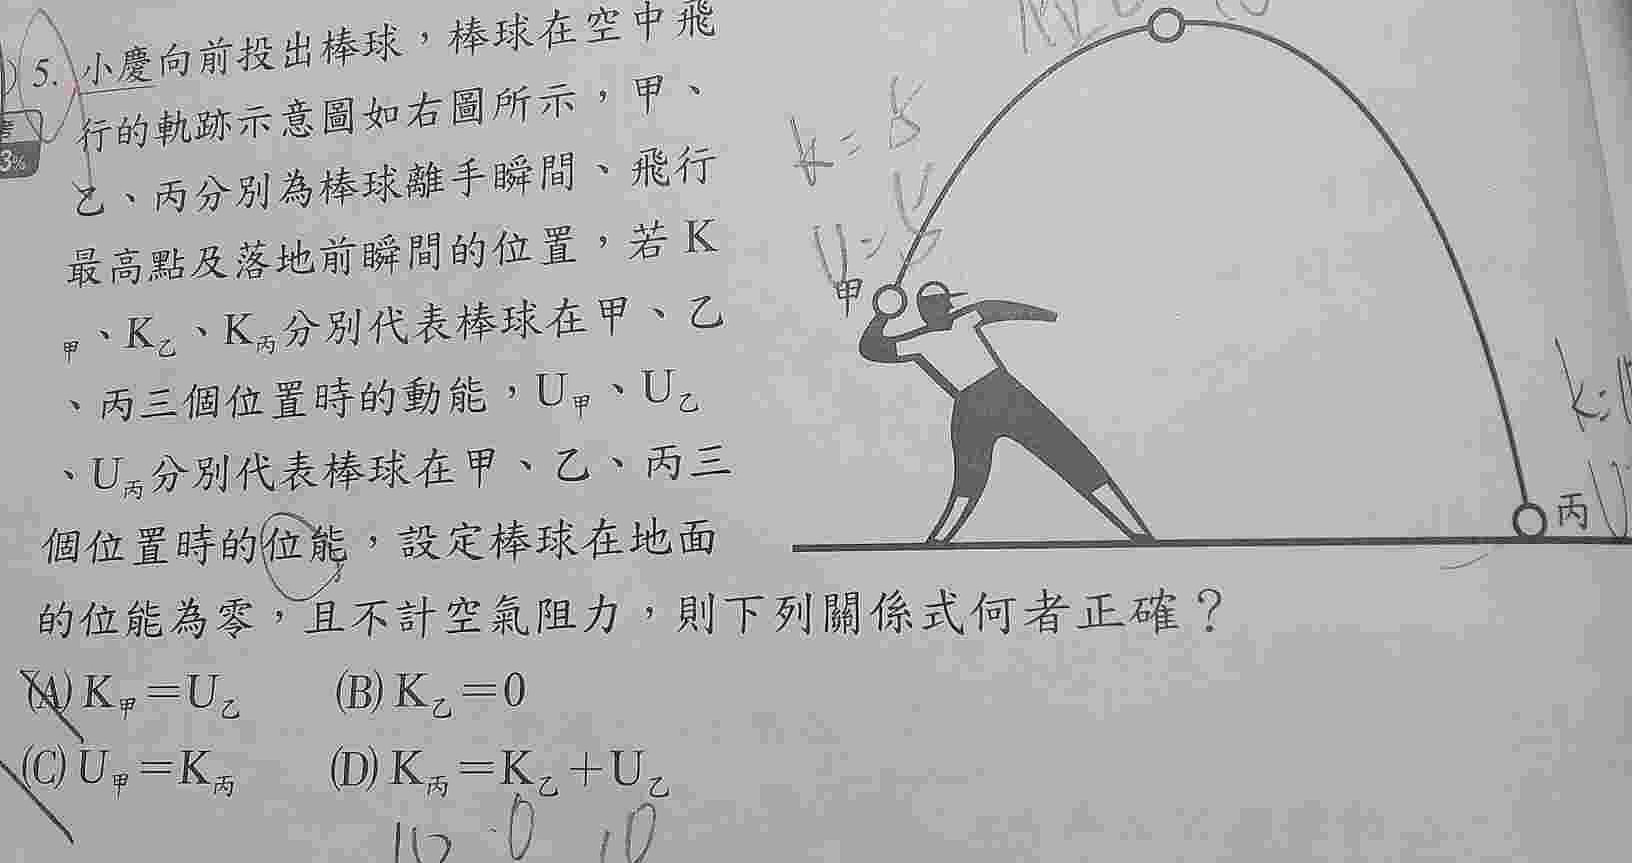 5. 小慶向前投出棒球，棒球在空中飛
行的軌跡示意圖如右圖所示，甲、
乙、丙分別為棒球離手瞬間、飛行
最高點及落地前瞬間的位置，若 K
甲、K乙、K丙分別代表棒球在甲、乙
、丙三個位置時的動能，U甲、U乙
、U丙分別代表棒球在甲、乙、丙三
個位置時的位能，設定棒球在地面
的位能為零，且不計空氣阻力，則下列關係式何者正確？
(A) K甲＝U乙 (B) K乙＝0
(C) U甲＝K丙 (D) K丙＝K乙＋U乙
10 0 10
3%
k=5
U=5
甲
丙
k=
U